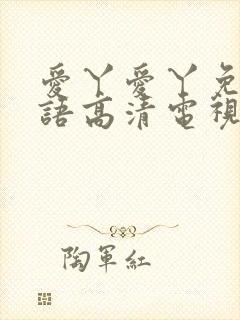 愛丫愛丫免
語高清電視
陶軍紅